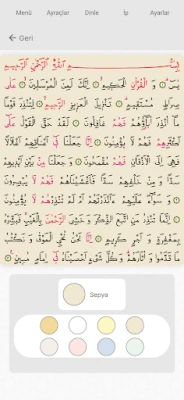 Menü Ayraçlar Dinle İp Ayarlar
Geri
بِسْمِ اللّٰهِ الرَّحْمٰنِ الرَّحِيمِ
يٰسۤ وَ الْقُرْاٰنِ الْحَكِيمِ اِنَّكَ لَمِنَ الْمُرْسَلِينَ عَلٰى
صِرَاطٍ مُسْتَقِيمٍ تَنْزِيلَ الْعَزِيزِ الرَّحِيمِ لِتُنْذِرَ قَوْمًا
مَا اُنْذِرَ اٰبَاؤُهُمْ فَهُمْ غَافِلُونَ لَقَدْ حَقَّ الْقَوْلُ عَلٰى
اَكْثَرِهِمْ فَهُمْ لَا يُؤْمِنُونَ اِنَّا جَعَلْنَا فِى اَعْنَاقِهِمْ اَغْلَالًا
فَهِىَ اِلَى الْاَذْقَانِ فَهُمْ مُقْمَحُونَ وَ جَعَلْنَا مِنْ بَيْنِ اَيْدِيهِمْ
سَدًّا وَ مِنْ خَلْفِهِمْ سَدًّا فَاَغْشَيْنَاهُمْ فَهُمْ لَا يُبْصِرُونَ
وَ سَوَاءٌ عَلَيْهِمْ ءَاَنْذَرْتَهُمْ اَمْ لَمْ تُنْذِرْهُمْ لَا يُؤْمِنُونَ
اِنَّمَا تُنْذِرُ مَنِ اتَّبَعَ الذِّكْرَ وَ خَشِىَ الرَّحْمٰنَ بِالْغَيْبِ فَبَشِّرْهُ
بِمَغْفِرَةٍ وَ اَجْرٍ كَرِيمٍ اِنَّا نَحْنُ نُحْيِى الْمَوْتٰى وَ نَكْتُبُ
مَا قَدَّمُوا وَ اٰثَارَهُمْ وَ كُلَّ شَىْءٍ اَحْصَيْنَاهُ فِى اِمَامٍ مُبِينٍ
Sepya